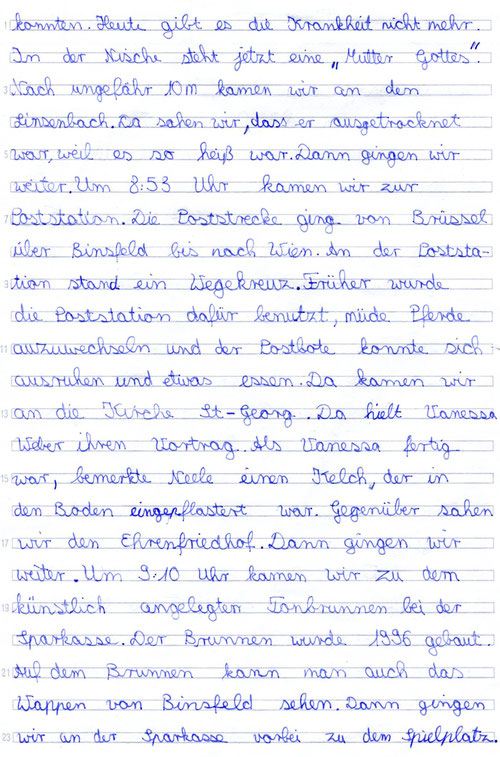 1 konnten. Heute gibt es die Krankheit nicht mehr.
In der Nische steht jetzt eine „Mutter Gottes".
3 Nach ungefähr 10m kamen wir an den
Linsenbach. Da sahen wir, dass er ausgetrocknet
5 war, weil es so heiß war. Dann gingen wir
weiter. Um 8:53 Uhr kamen wir zur
7 Poststation. Die Poststrecke ging von Brüssel
über Binsfeld bis nach Wien. An der Poststa-
9 tion stand ein Wegekreuz. Früher wurde
die Poststation dafür benutzt, müde Pferde
11 auszuwechseln und der Postbote konnte sich
ausruhen und etwas essen. Da kamen wir
13 an die Kirche St-Georg. Da hielt Vanessa
Weber ihren Vortrag. Als Vanessa fertig
15 war, bemerkte Neele einen Kelch, der in
den Boden eingepflastert war. Gegenüber sahen
17 wir den Ehrenfriedhof. Dann gingen wir
weiter. Um 9:10 Uhr kamen wir zu dem
19 künstlich angelegten Tonbrunnen bei der
Sparkasse. Der Brunnen wurde 1996 gebaut.
21 Auf dem Brunnen kann man auch das
Wappen von Binsfeld sehen. Dann gingen
23 wir an der Sparkasse vorbei zu dem Spielplatz.